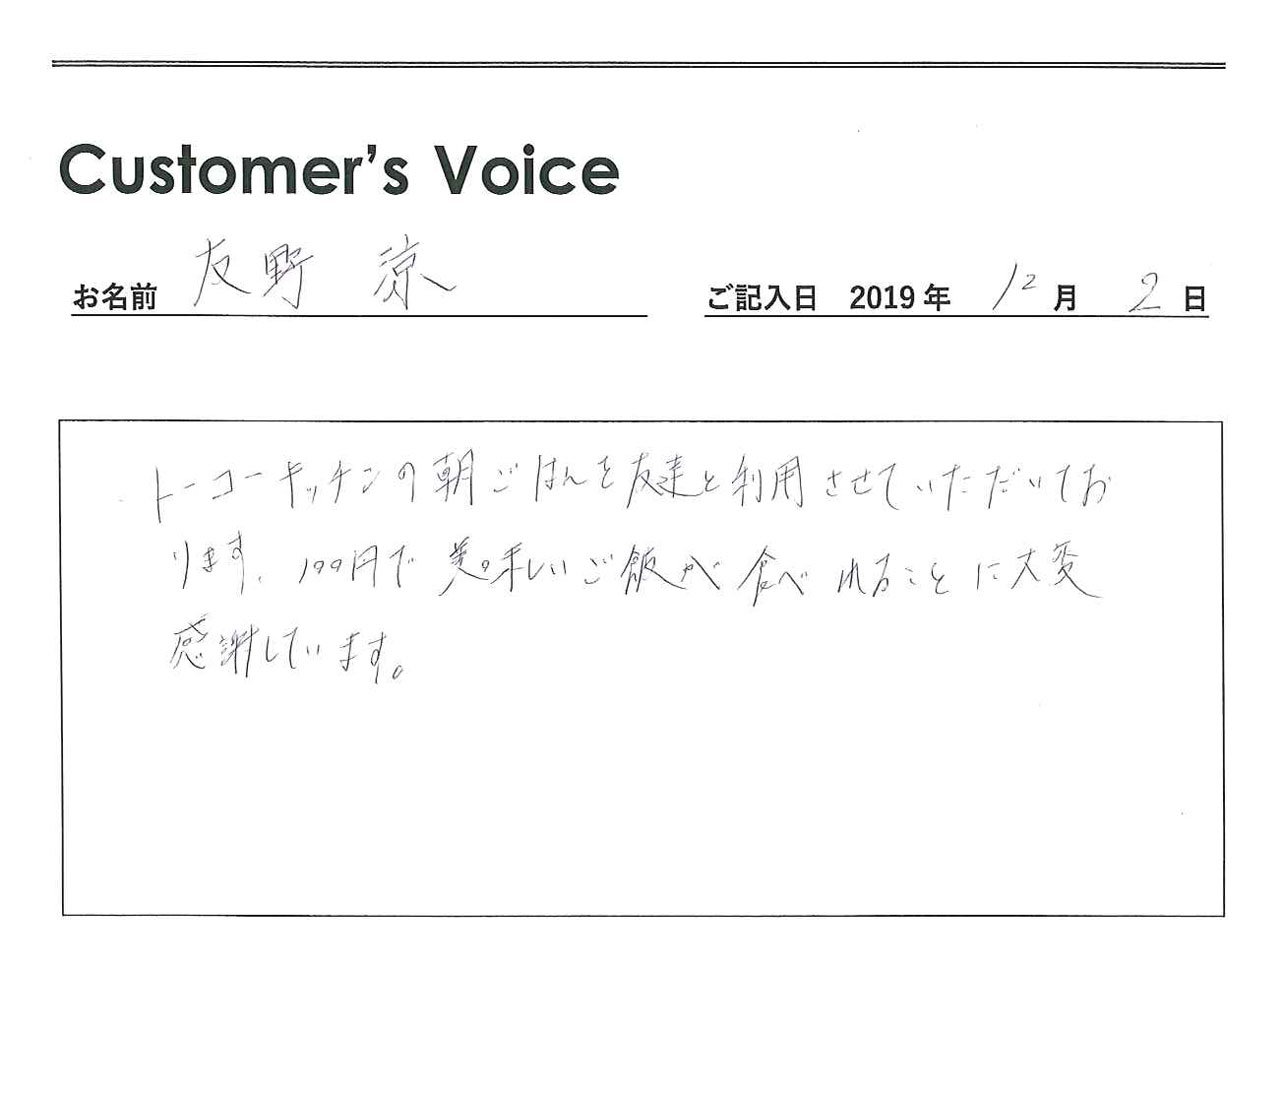 Customer's Voice
お名前 友野 涼 ご記入日 2019年 12月 2日
トーコーキッチンの朝ごはんを友達と利用させていただいてお
ります。100円で美味しいご飯が食べれることに大変
感謝しています。